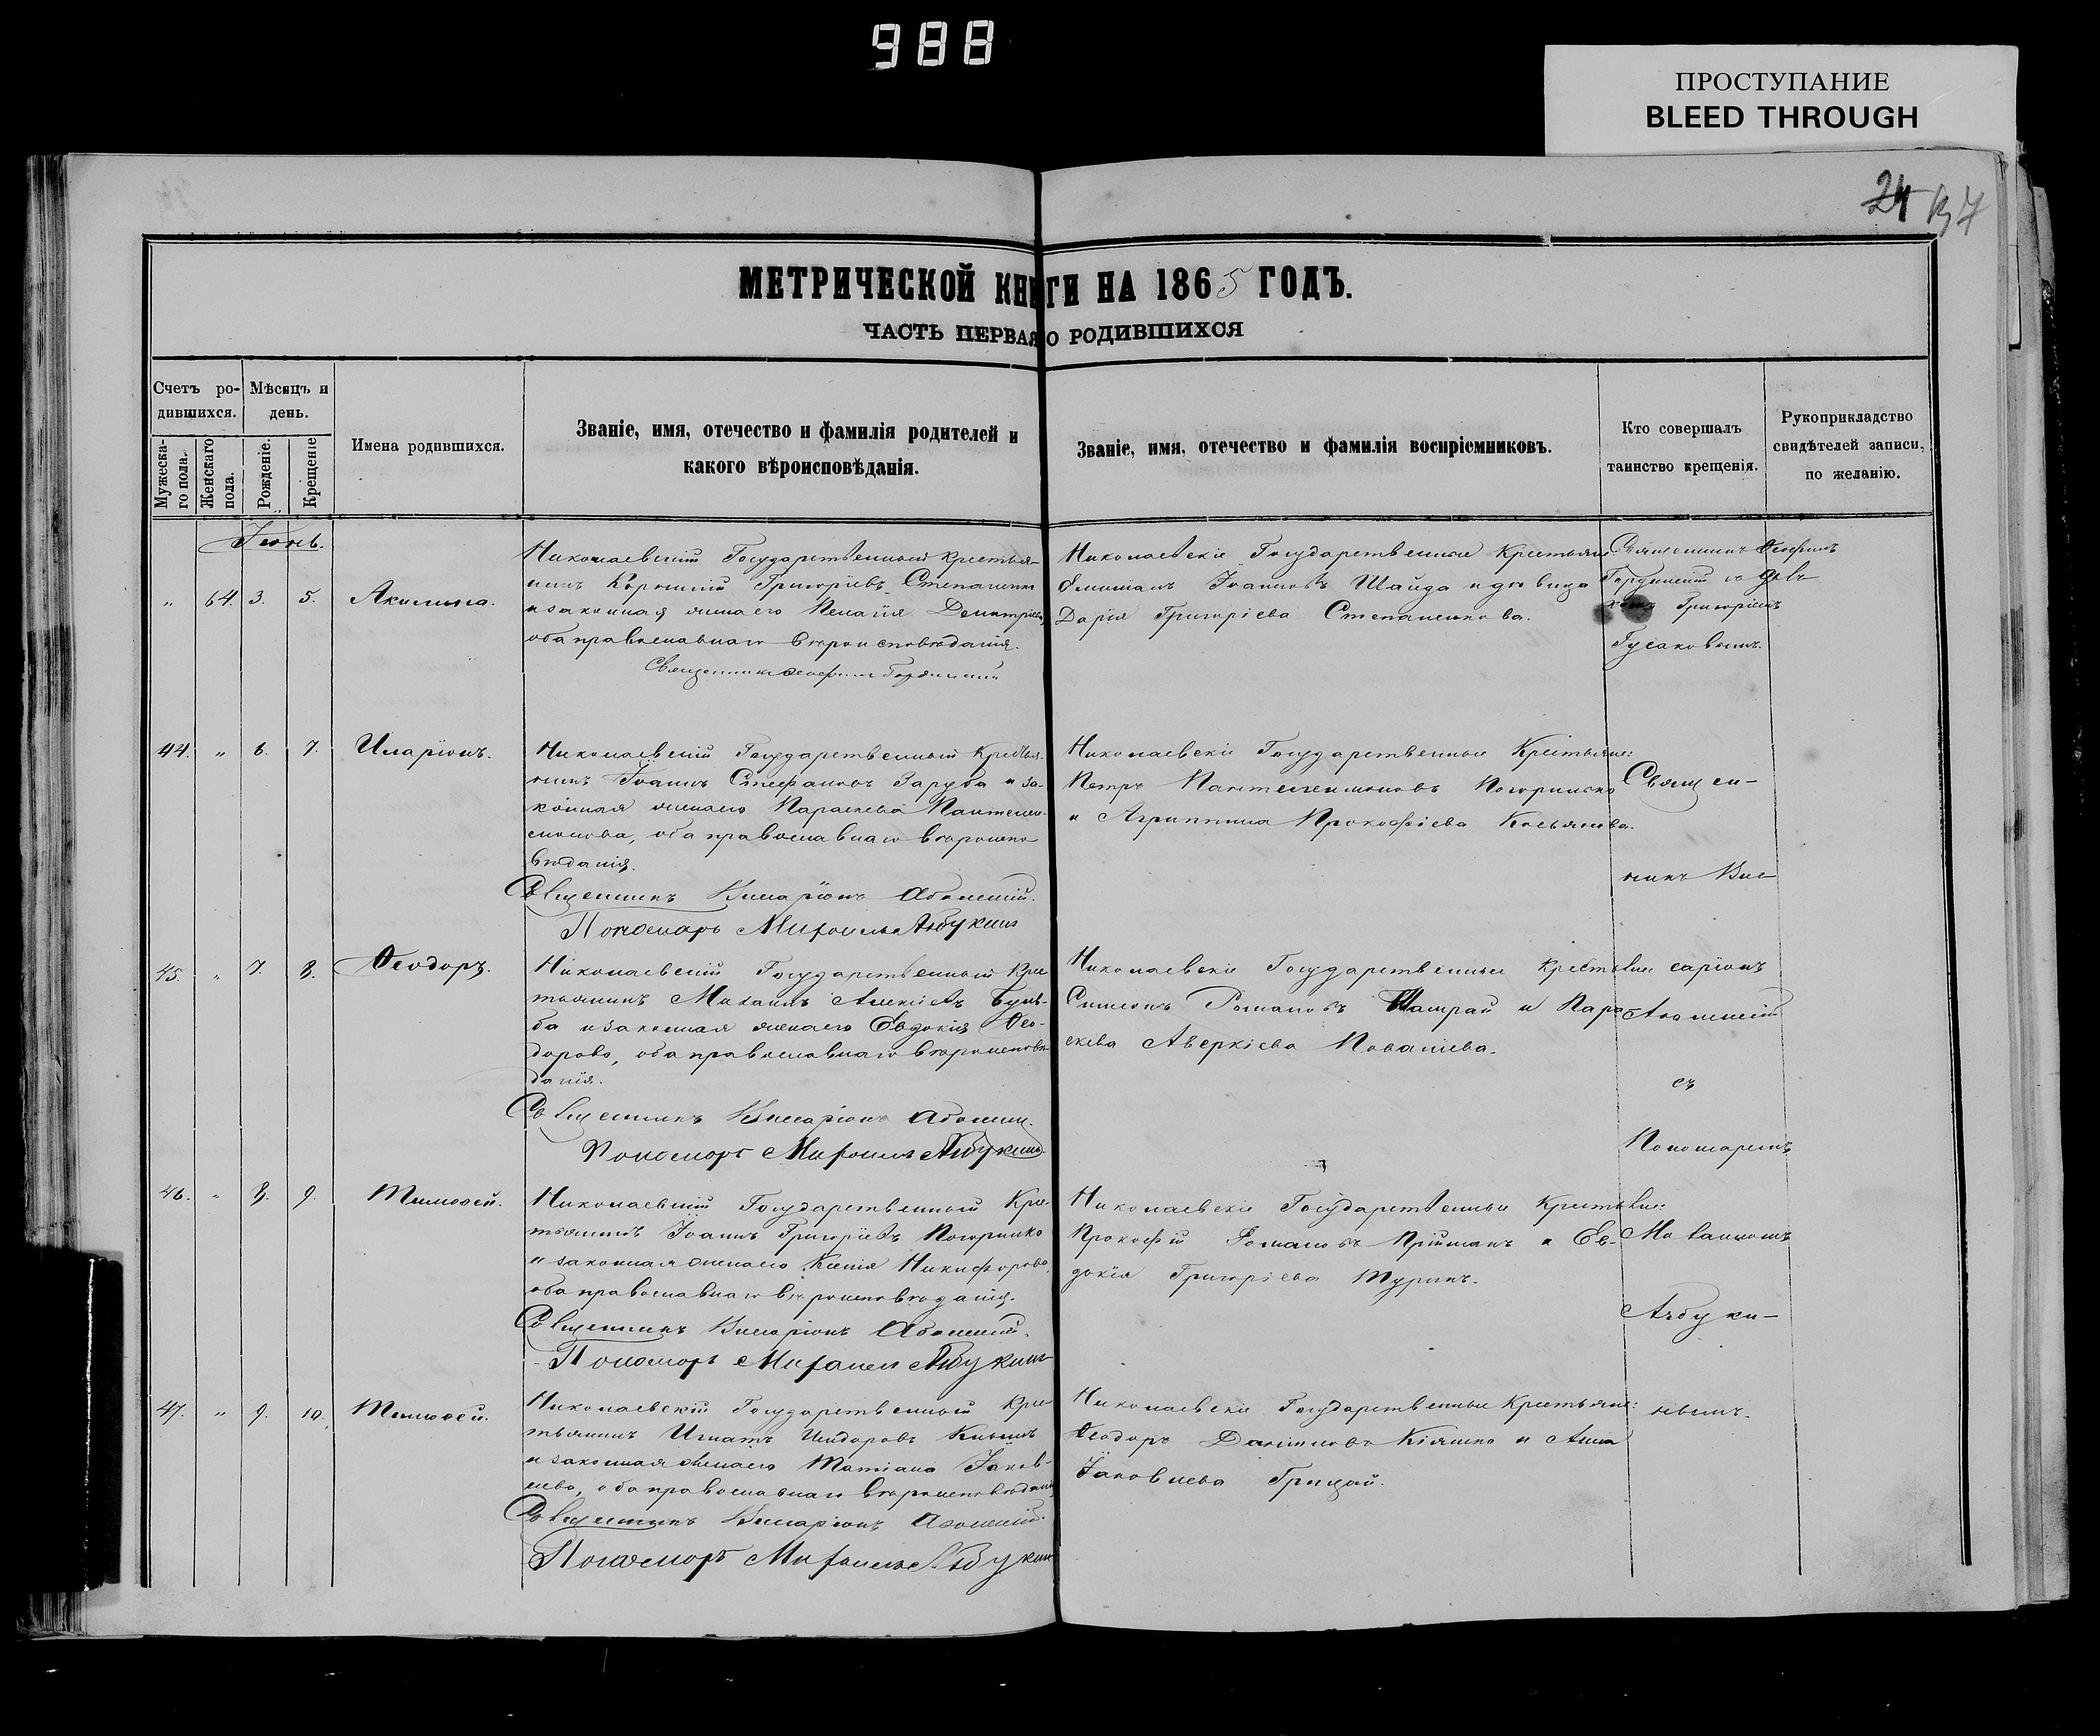 988
ПРОСТУПАНИЕ
BLEED THROUGH
24
МЕТРИЧЕСКОЙ КНИГИ НА 1865 ГОДЪ.
ЧАСТЬ ПЕРВАЯ О РОДИВШИХСЯ
Счетъ ро-
дившихся.
Мужеска-
го пола.
Женскаго
пола.
Мѣсяцъ и
день.
Рожденіе.
Крещеніе
Имена родившихся.
Званіе, имя, отечество и фамилія родителей и
какого вѣроисповѣданія.
Званіе, имя, отечество и фамилія воспріемниковъ.
Кто совершалъ
таинство крещенія.
Рукоприкладство
свидѣтелей записи,
по желанію.
Іюнь.
" 64. 3. 5. Акилина.
Николаевскій Государственный крестья-
нинъ Григоріевъ Степаненко
и законная жена его Пелагія Димитріева,
оба православнаго вѣроисповѣданія.
Священникъ Ѳеофилъ
Николаевскіе Государственные Крестьяне:
Іоанновъ Шайда и дѣвица
Дарія Григоріева Степаненкова.
Священникъ Ѳеофилъ
съ дьяч-
Григоріемъ
Гусаковымъ.
44. " 6. 7. Иларіонъ.
Николаевскій Государственный Крестья-
нинъ Іоаннъ Стефановъ Заруба и за-
конная жена его Параскева Пантелеи-
монова, оба православнаго вѣроиспо-
вѣданія.
Священникъ Виссаріонъ
Пономарь Азбукинъ
Николаевскіе Государственные Крестьяне:
Петръ Пантелеимоновъ Погорилко
и Агриппина Прокофіева Касьянова.
Священ-
никъ Вис-
45. " 7. 8. Ѳеодоръ.
Николаевскій Государственный Крес-
тьянинъ Михаилъ Алексіевъ Буль-
ба и законная жена его Евдокія Ѳео-
дорова, оба православнаго вѣроисповѣ-
данія.
Священникъ Виссаріонъ
Пономарь Азбукинъ
Николаевскіе Государственные Крестьяне
Симеонъ Романовъ Шамрай и Пара-
скева Аверкіева
саріонъ
съ
Пономаремъ
46. " 8. 9. Тимоѳей.
Николаевскій Государственный Крес-
тьянинъ Іоаннъ Григоріевъ Погорилко
и законная жена его Ксенія Никифорова,
оба православнаго вѣроисповѣданія.
Священникъ Виссаріонъ
Пономарь Азбукинъ
Николаевскіе Государственные Крестьяне:
Прокофій Романовъ Пріймакъ и Ев-
докія Григоріева Турикъ.
Азбуки-
47. " 9. 10. Тимоѳей.
Николаевскій Государственный Крес-
тьянинъ Игнатъ Исидоровъ
и законная жена его Татіана Іаков-
лева, оба православнаго вѣроисповѣданія
Священникъ Виссаріонъ
Пономарь Азбукинъ
Николаевскіе Государственные Крестьяне:
Ѳеодоръ Даниловъ Кіяшко и Анна
Іаковлева Грицай.
нымъ.